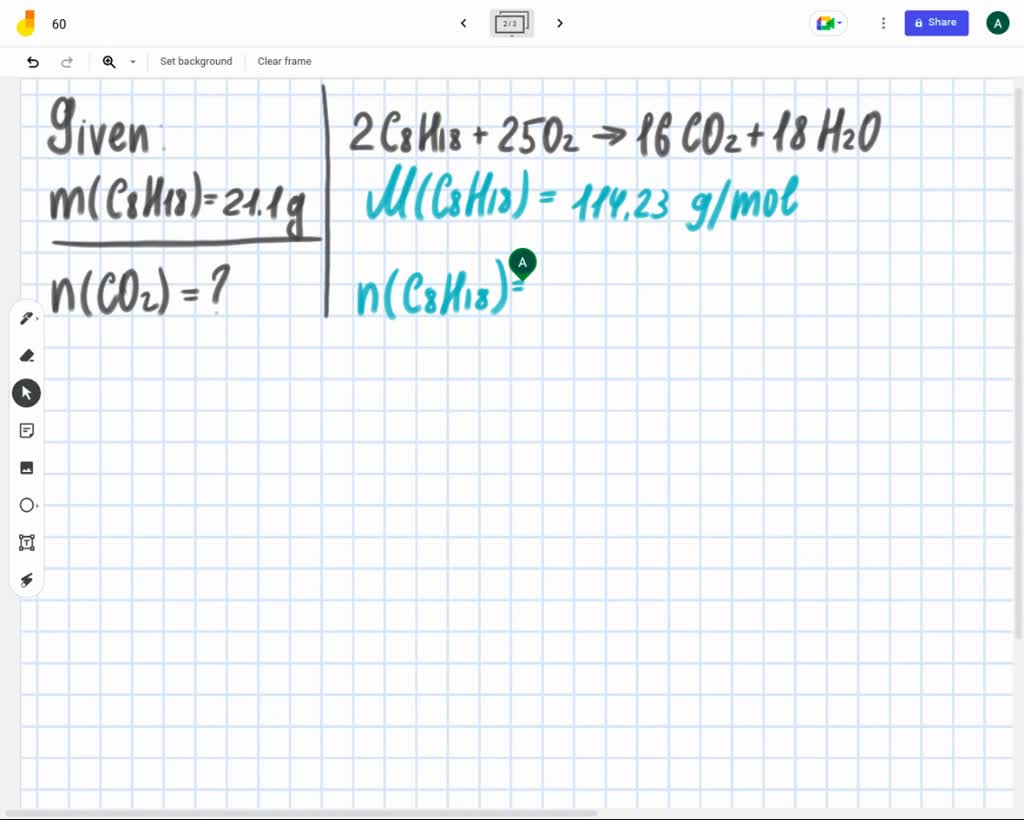 60
2/3
Share
A
Set background
Clear frame
Given:
m(C8H18)=21.1g
n(CO2)=?
2C8H18 + 25O2 → 16CO2 + 18H2O
M(C8H18) = 114,23 g/mol
n(C8H18)=
A